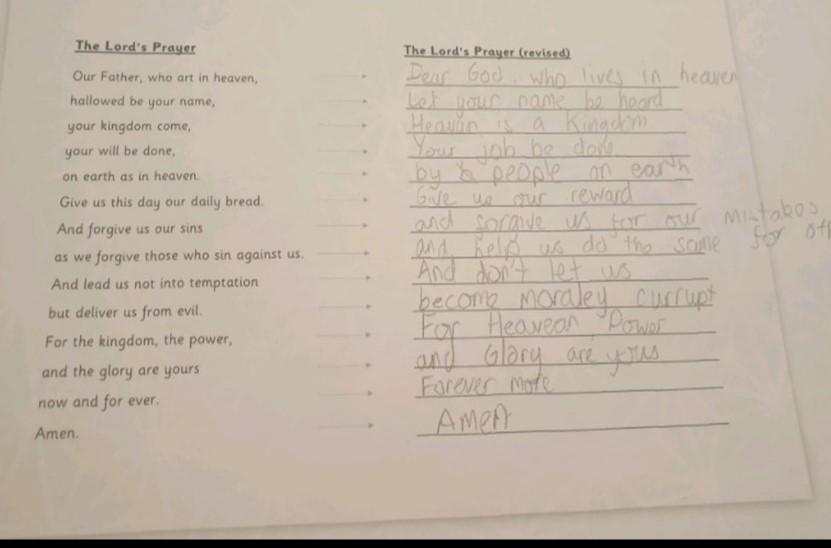 The Lord's Prayer
Our Father, who art in heaven,
hallowed be your name,
your kingdom come,
your will be done,
on earth as in heaven.
Give us this day our daily bread.
And forgive us our sins
as we forgive those who sin against us.
And lead us not into temptation
but deliver us from evil.
For the kingdom, the power,
and the glory are yours
now and for ever.
Amen.
The Lord's Prayer (revised)
Dear God, who lives in heaven
Let your name be heard
is a Kingdom
Your job be done
by people on earth
Give us our reward
and forgive us for our Mistakes
and help us do the same for
And don't let us
become moraley currupt
For Heavean, Power
and Glory are yours
Forever more
Amen